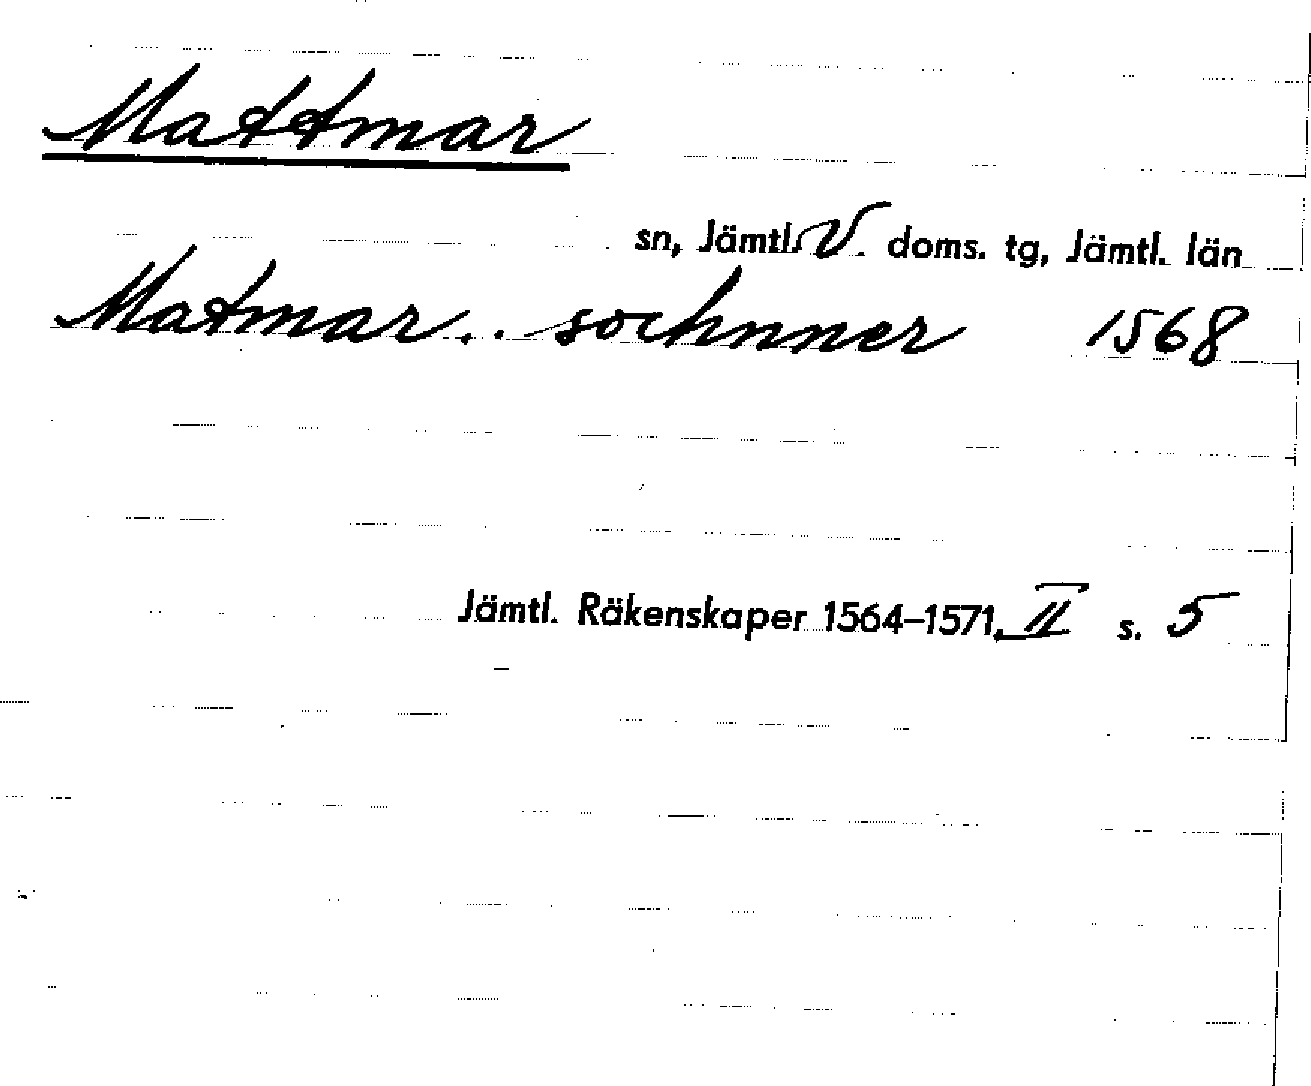 Mattmar
sn, Jämtl. V. doms. tg, Jämtl. län
Matmar .. sochnner 1568
Jämtl. Räkenskaper 1564–1571, II s. 5